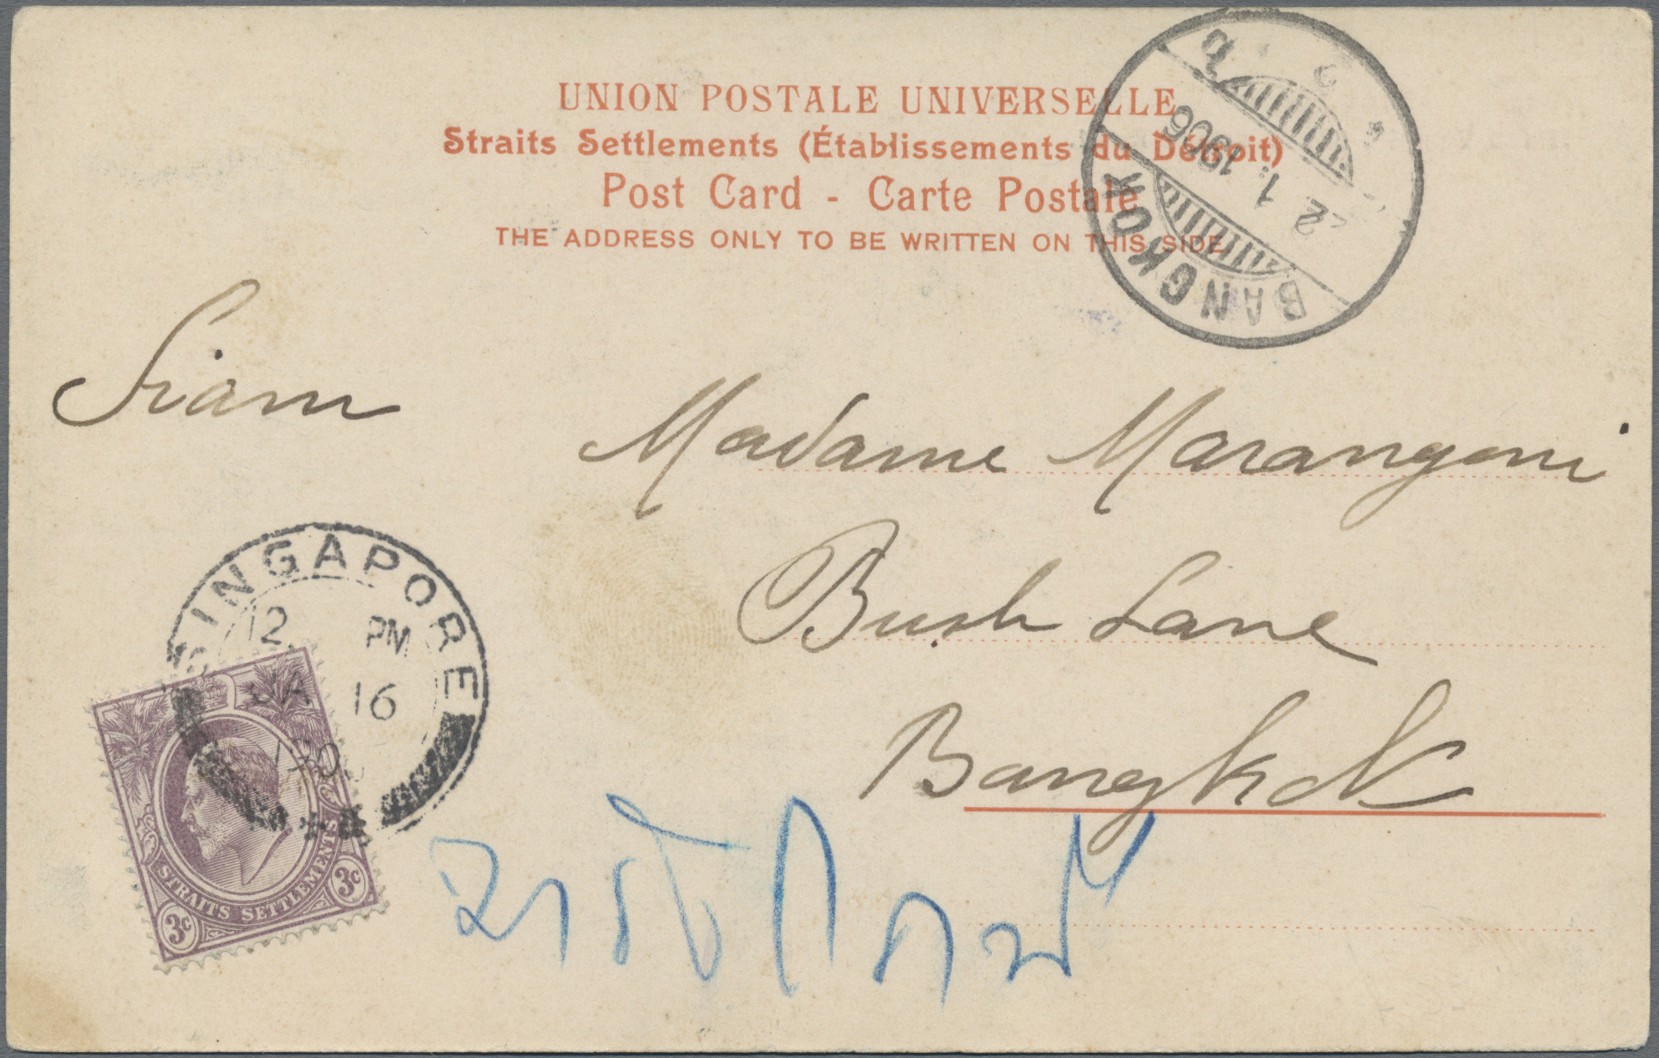 UNION POSTALE UNIVERSELLE
Straits Settlements (Établissements du Détroit)
Post Card - Carte Postale
THE ADDRESS ONLY TO BE WRITTEN ON THIS SIDE.
BANGKOK
22 1. 1906
Siam
Madame Marangoni
Bush Lane
Bangkok
SINGAPORE
12 PM
JA 16
STRAITS SETTLEMENTS
3c 3c